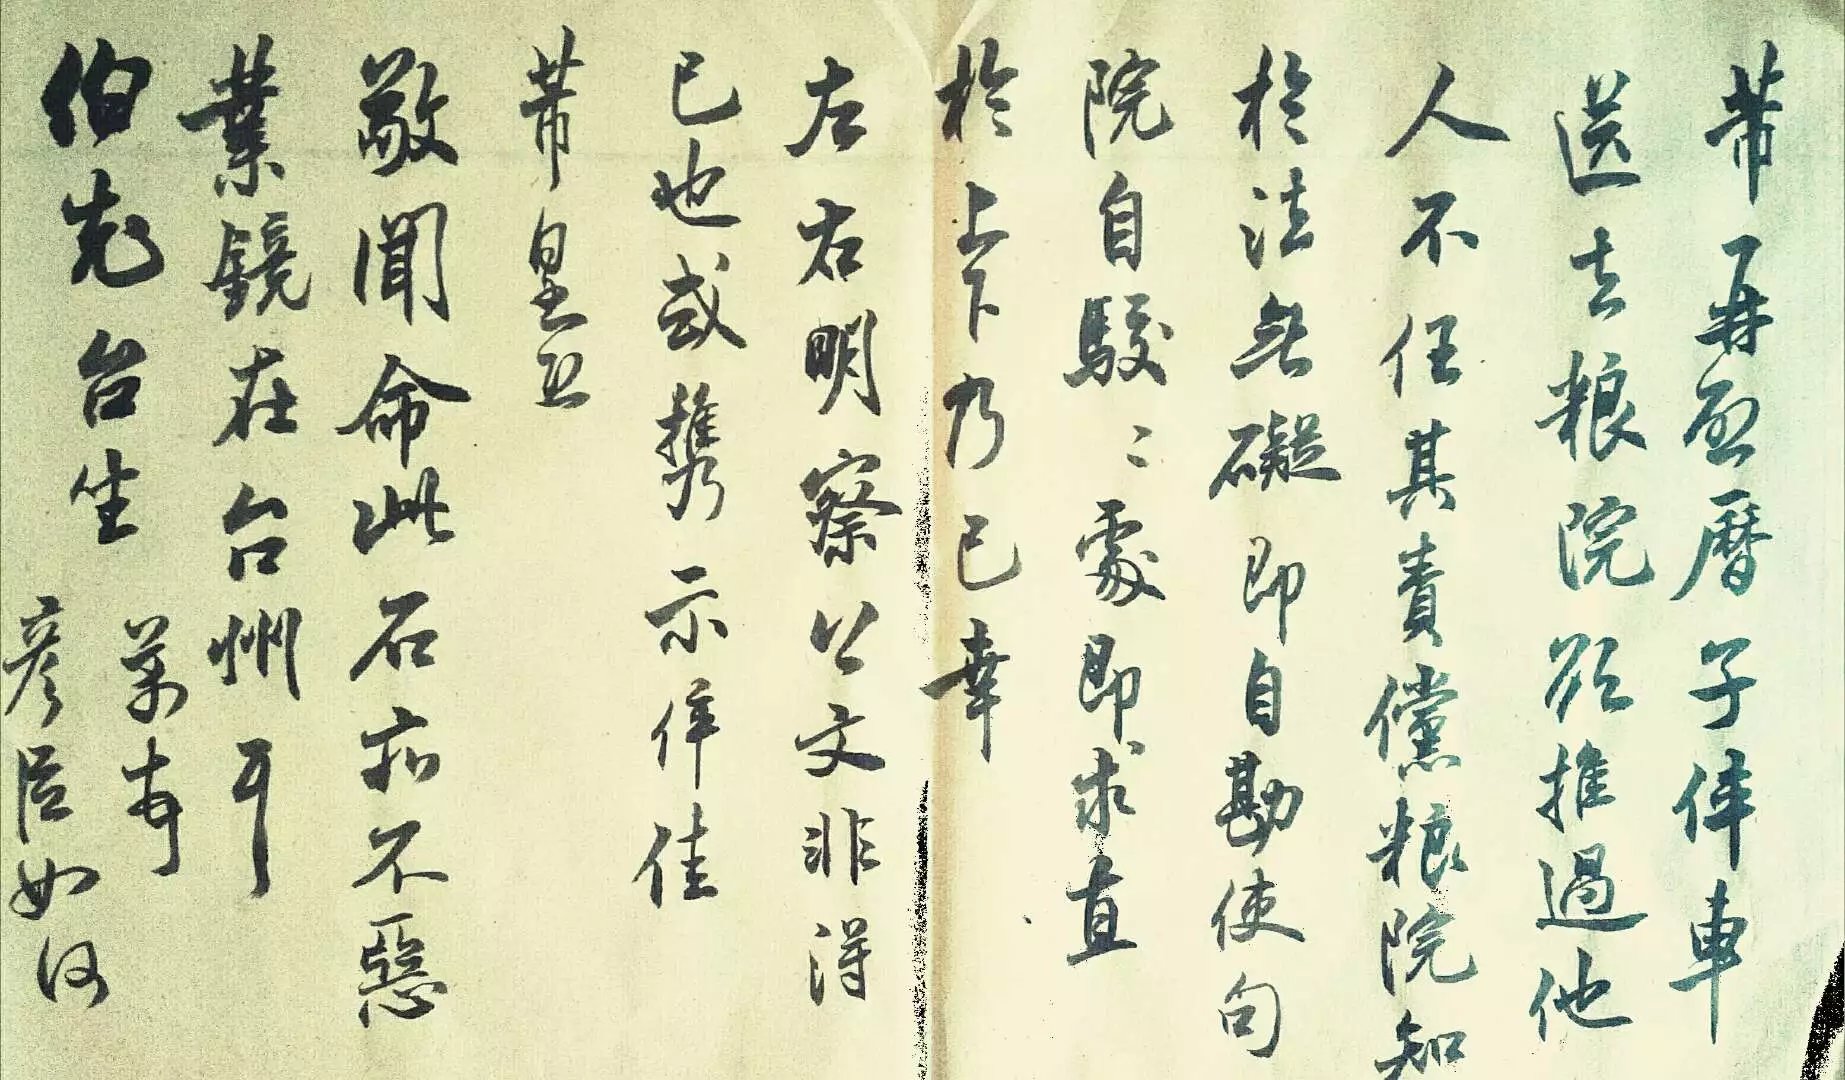 芾再啟曆子倅車
送去粮院欲推過他
人不任其責儻粮院知
於法無礙即自勘使句
院自駁〻處即求直
於上下乃已幸
左右明察公文非得
已也或携示倅佳
芾皇恐
敬聞命此石亦不惡
業鏡在台州耳
伯充台坐
彥臣如何